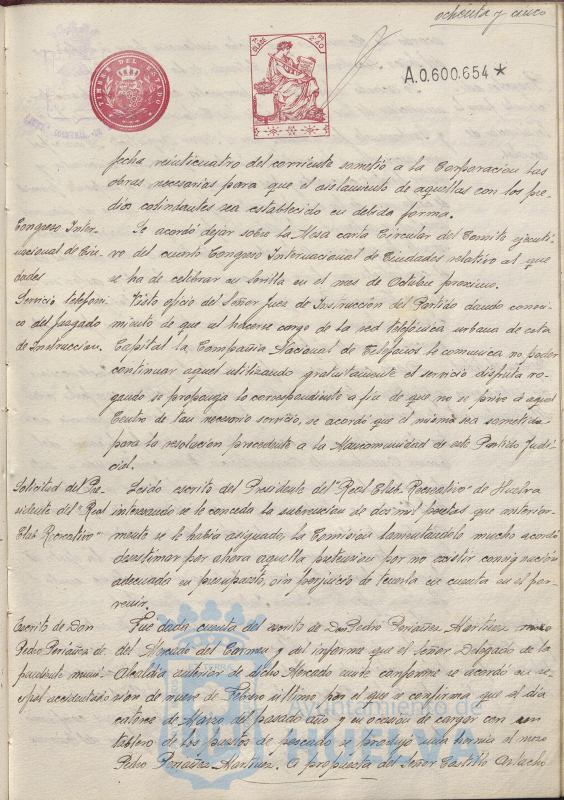 ochenta y cinco
TIMBRE DEL ESTADO
7ª CLASE
A.0.600.654 *
fecha veinticuatro del corriente sometió a la Corporacion las
obras necesarias para que el aislamiento de aquellas con los pre-
dios colindantes sea establecido en debida forma.
Congreso Inter-
nacional de Ciu-
dades
Se acordó dejar sobre la Mesa carta Circular del Comité ejecuti-
vo del cuarto Congreso Internacional de Ciudades relativo al que
se ha de celebrar en Sevilla en el mes de Octubre proximo.
Servicio telefoni-
co del Juzgado
de Instruccion.
Visto oficio del Señor Juez de Instrucción del Partido dando conoci-
miento de que al hacerse cargo de la red telefónica urbana de esta
Capital la Compañia Nacional de Telefonos le comunica no poder
continuar aquel utilizando gratuitamente el servicio disfruta ro-
gando se proponga lo correspondiente a fin de que no se prive á aquel
Centro de tan necesario servicio, se acordó que el mismo sea sometido
para la resolucion procedente a la Mancomunidad de este Partido Judi-
cial.
Solicitud del Pre-
sidente del "Real
Club Recreativo"
Leido escrito del Presidente del "Real Club Recreativo" de Huelva
interesando se le conceda la subvencion de dos mil pesetas que anterior-
mente se le habia asignado, la Comisión lamentandolo mucho acordó
desestimar por ahora aquella pretension por no existir consignación
adecuada en presupuesto, sin perjuicio de tenerla en cuenta en el por-
venir.
Escrito de Don
Pedro Periañez de-
pendiente muni-
cipal accidentado
Fue dada cuenta del escrito de Don Pedro Periañez Martinez mozo
del Mercado del Carmen y del informe que el Señor Delegado de la
Alcaldia anterior de dicho Mercado emite conforme se acordó en se-
sion de nueve de Febrero último por el que se confirma que el dia
catorce de Marzo del pasado año y en ocasion de cargar con un
tablero de los puestos de pescado se produjo una hernia el mozo
Pedro Periañez Martinez. A propuesta del Señor Castillo
Ayuntamiento de
HUELVA